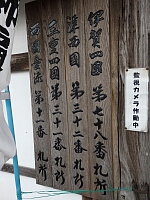 伊賀四国第七十八番札所
津西国第三十二番札所
三重四国第三十一番札所
西国霊法第十一番札所
監視カメラ作動中